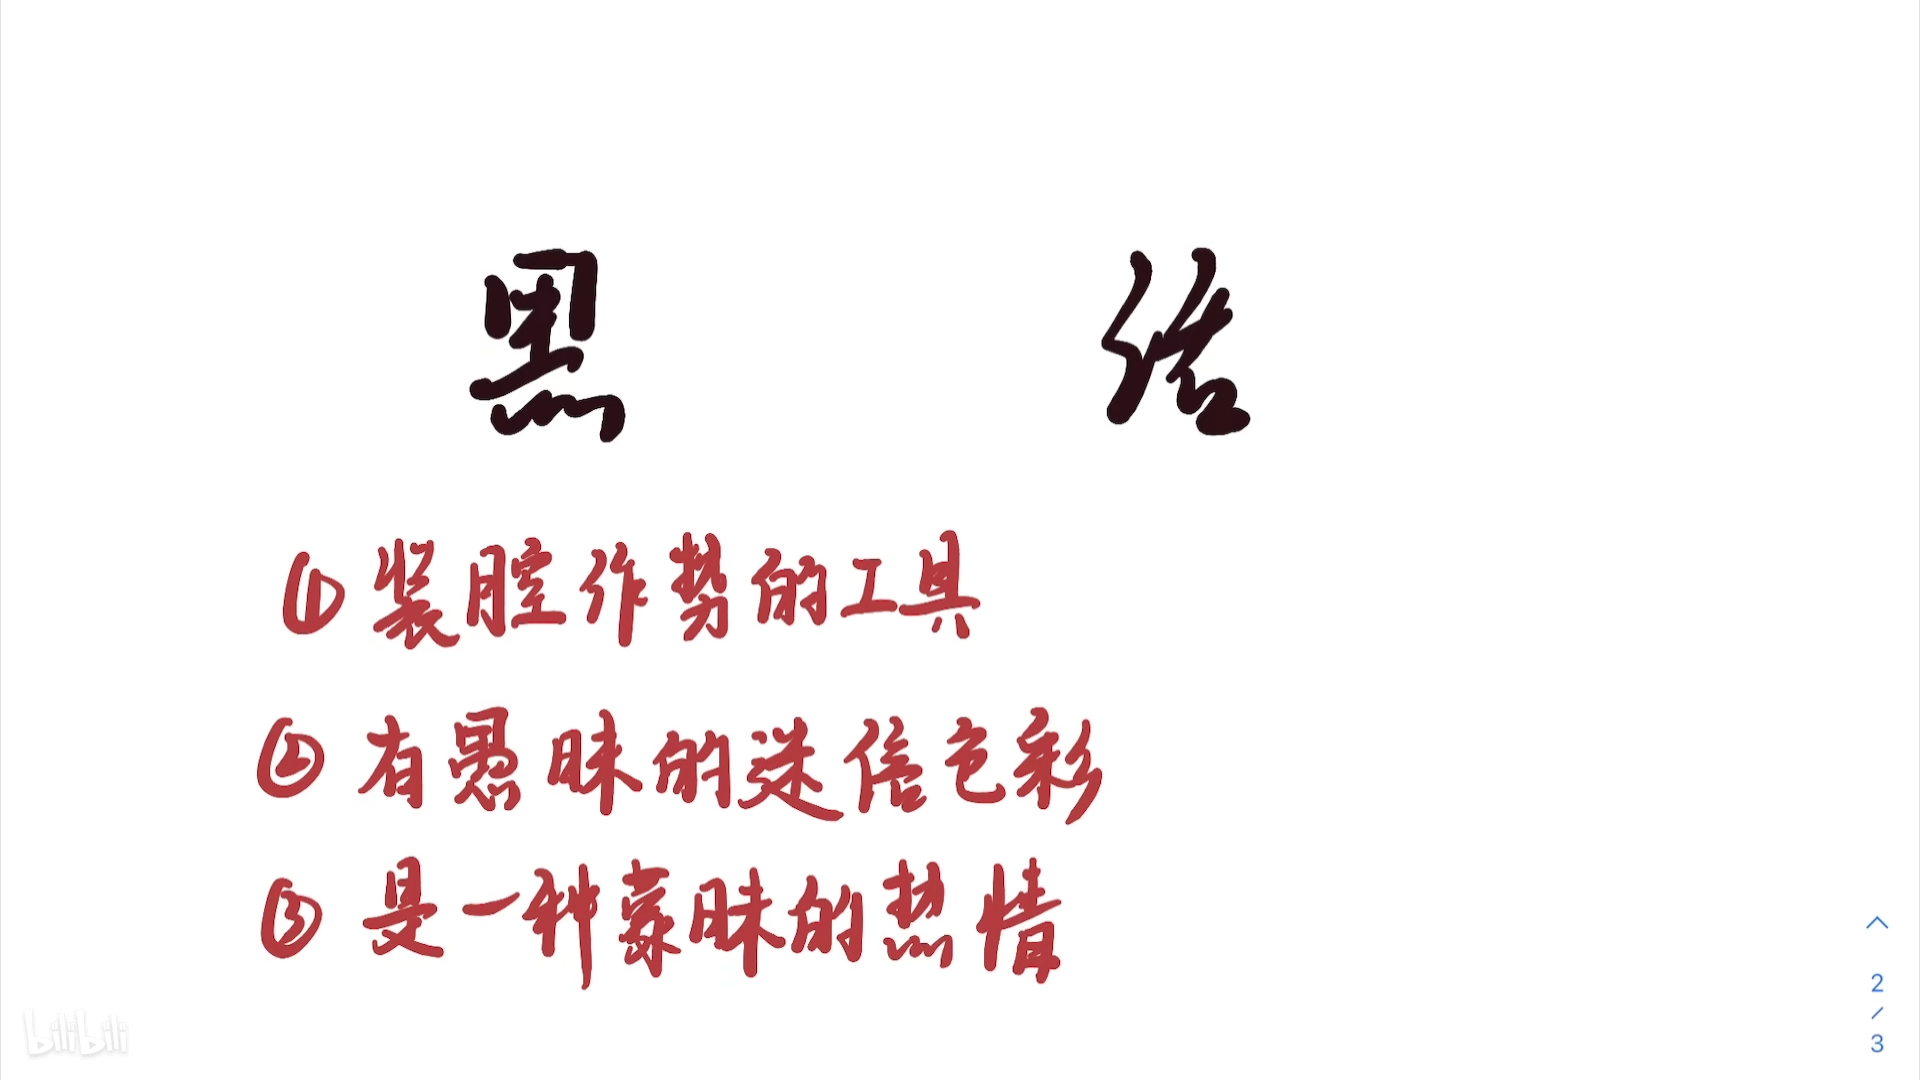 黑 话
①装腔作势的工具
②有愚昧的迷信色彩
③是一种蒙昧的热情
2
/
3
bilibili